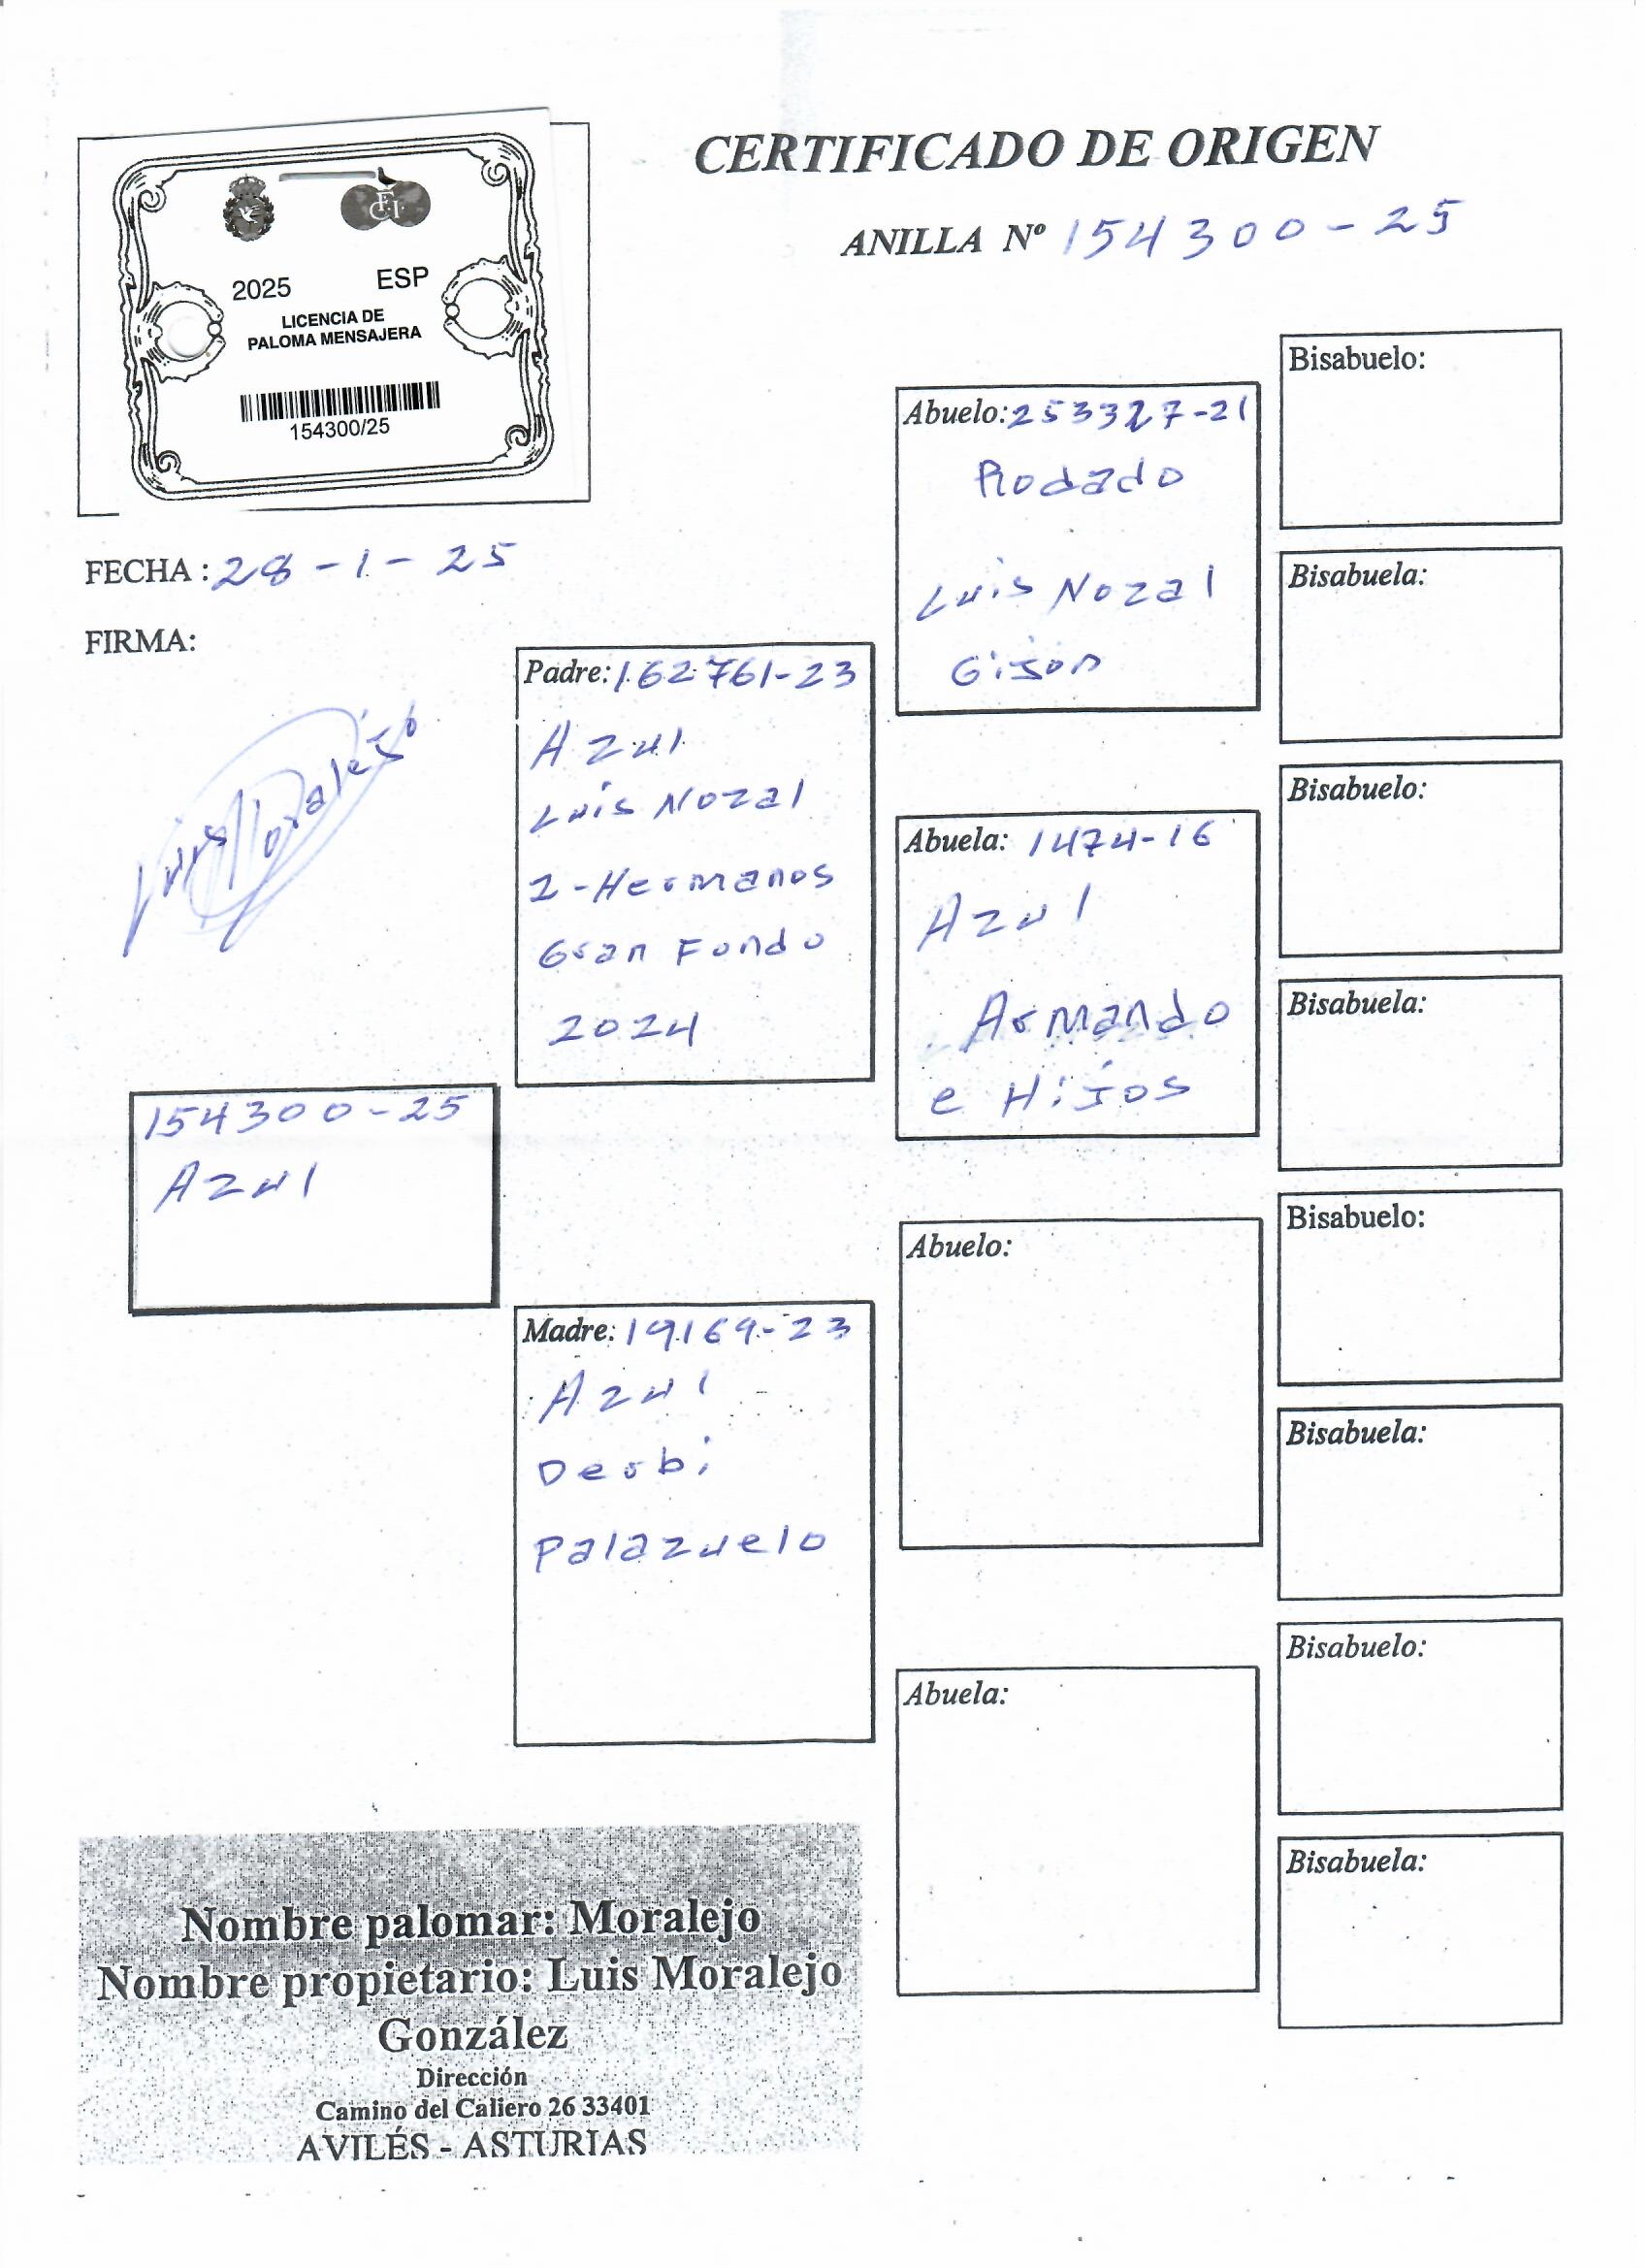 CERTIFICADO DE ORIGEN
ANILLA Nº 154300-25
FCI
2025 ESP
LICENCIA DE
PALOMA MENSAJERA
154300/25
FECHA: 28-1-25
FIRMA:
Luis Moralejo
154300-25
Azul
Padre: 162761-23
Azul
Luis Nozal
2-Hermanos
Gran Fondo
2024
Madre: 19169-23
Azul
Derbi
Palazuelo
Abuelo: 253327-21
Rodado
Luis Nozal
Gijon
Abuela: 1474-16
Azul
Armando
e Hijos
Abuelo:
Abuela:
Bisabuelo:
Bisabuela:
Bisabuelo:
Bisabuela:
Bisabuelo:
Bisabuela:
Bisabuelo:
Bisabuela:
Nombre palomar: Moralejo
Nombre propietario: Luis Moralejo
González
Dirección
Camino del Caliero 26 33401
AVILÉS - ASTURIAS